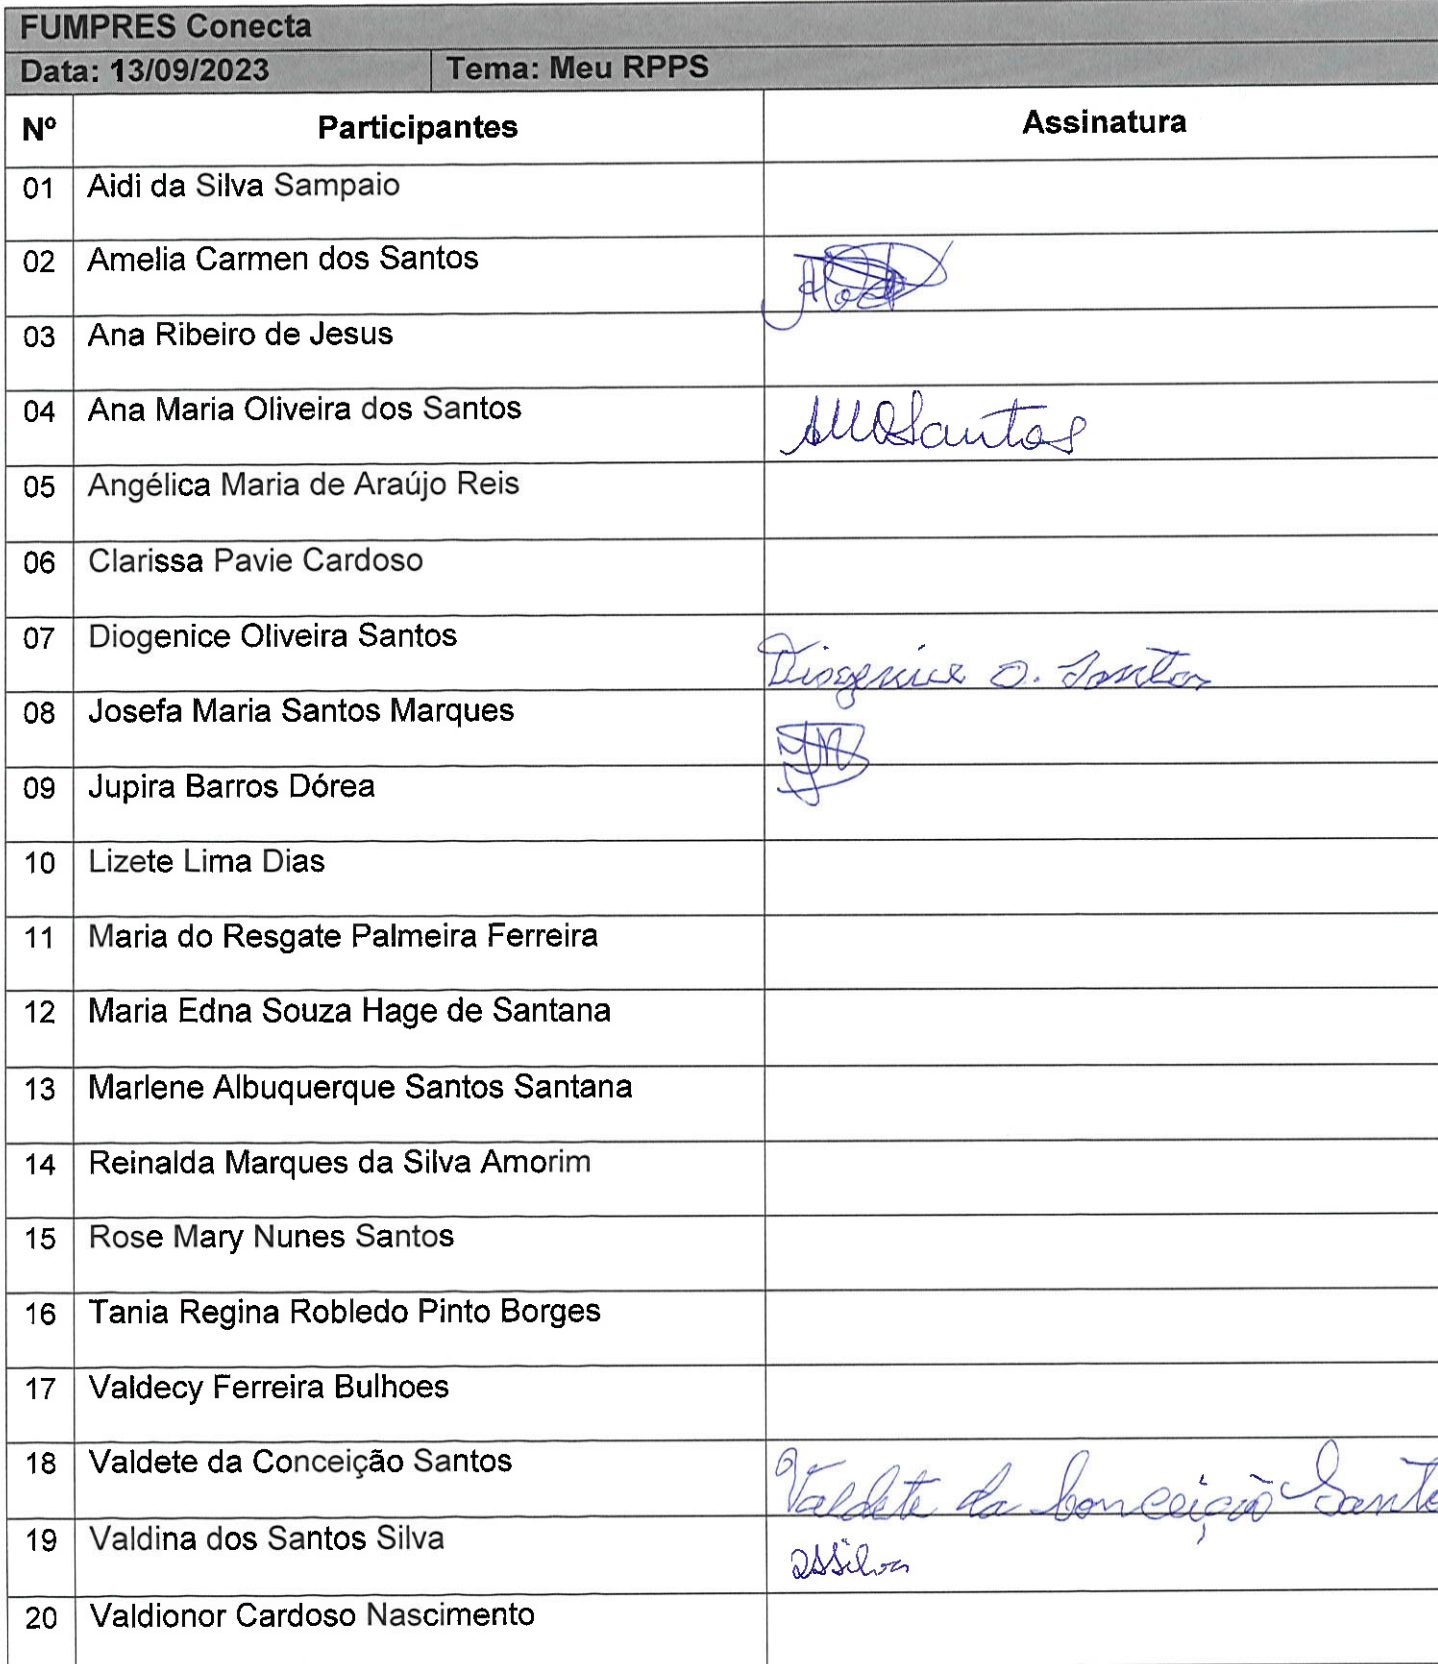 FUMPRES Conecta
Data: 13/09/2023 Tema: Meu RPPS
Nº Participantes Assinatura
01 Aidi da Silva Sampaio
02 Amelia Carmen dos Santos
03 Ana Ribeiro de Jesus
04 Ana Maria Oliveira dos Santos AMOSantos
05 Angélica Maria de Araújo Reis
06 Clarissa Pavie Cardoso
07 Diogenice Oliveira Santos Diogenice O. Santos
08 Josefa Maria Santos Marques
09 Jupira Barros Dórea
10 Lizete Lima Dias
11 Maria do Resgate Palmeira Ferreira
12 Maria Edna Souza Hage de Santana
13 Marlene Albuquerque Santos Santana
14 Reinalda Marques da Silva Amorim
15 Rose Mary Nunes Santos
16 Tania Regina Robledo Pinto Borges
17 Valdecy Ferreira Bulhoes
18 Valdete da Conceição Santos Valdete da Conceição Santo
19 Valdina dos Santos Silva
20 Valdionor Cardoso Nascimento